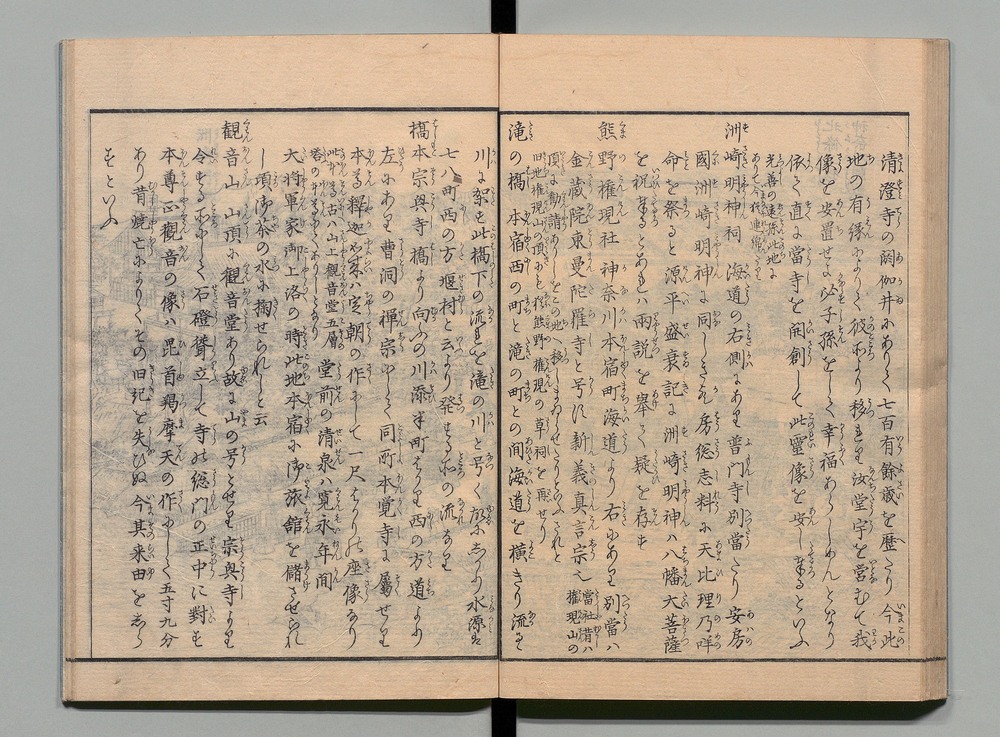 清澄寺の閼伽井にありて七百有餘歳を歴たり今此
地の有縁によりて彼所より移れり汝堂宇を営むで我
像を安置せよ必子孫をして幸福あらしめんとなり
依て直に當寺を開創して此霊像を安し奉るといふ
光善の遠孫此地に
ありて今代連綿たり
洲崎明神祠 海道の右側にあり普門寺別當たり安房
國洲崎明神に同しきよし房総志料に天比理乃咩
命を祭ると源平盛衰記に洲崎明神ハ八幡大菩薩
を祝奉るとあれハ両説を挙て疑を存す
熊野権現社 神奈川本宿町海道より右にあり別當ハ
金蔵院東曼陀羅寺と号し新義真言宗也 當社昔ハ権現山の
頂に勧請ありしをこの地へ移しまゐらせしとあふされと
旧地権現山の頂にも猶熊野権現の草祠を再せり
滝の橋 本宿西の町と滝の町との間海道を横きり流る
川に架す此橋下の流れを滝の川と号く水源は
七八町西の方堰村と云より発する所の流なり
橋本宗興寺 橋より向ふの川添半町はかり西の方道より
左にあり曹洞の禅宗にして同町本覚寺に属せり
本尊釋迦如来ハ定朝の作にして一尺はかりの座像なり
此寺昔ハ山上観音堂五層
堂前の清泉ハ寛永年間
大将軍家御上洛の時此地本宿に御旅館を儲させられ
し頃御茶の水に掬せられしと云
観音山 山頂に観音堂あり故に山の号とせり宗興寺より
令する所にして石磴聳立して寺の総門の正中に對す
本尊正觀音の像ハ毘首羯摩天の作にして五寸九分
あり昔焼亡によりてその旧記を失ひぬ今其来由をしら
すといふ